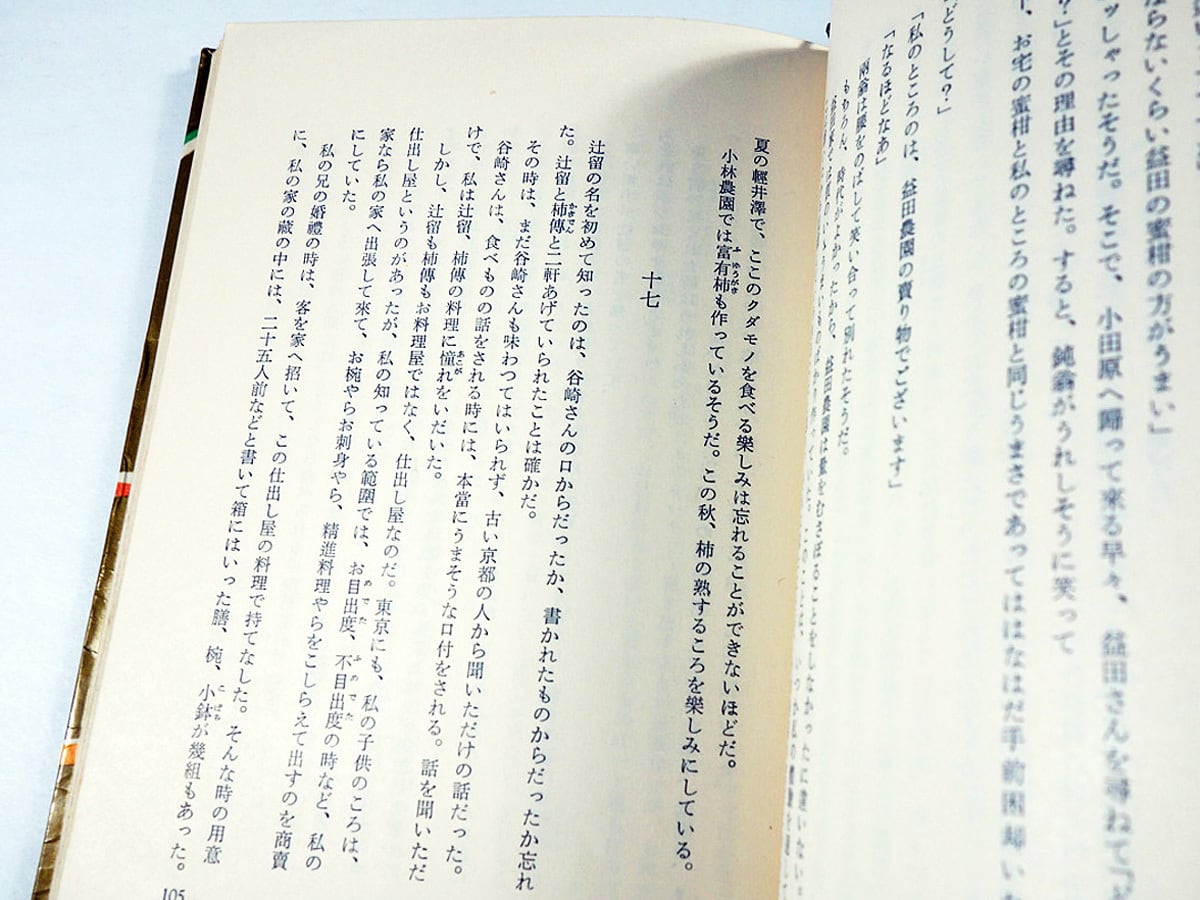 ならないくらい益田の蜜柑の方がうまい」
ッしゃったそうだ。そこで、小田原へ歸って來る早々、益田さんを尋ねて「ど
？」とその理由を尋ねた。すると、鈍翁がうれしそうに笑って
、お宅の蜜柑と私のところの蜜柑と同じうまさであってははなはだ手前困却いた
「どうして？」
「私のところのは、益田農園の賣り物でございます」
「なるほどなあ」
兩翁は腰をのばして笑い合って別れたそうだ。
もちろん、時代がよかったから、益田農園は數をむさぼることをしなかったに違いない。
夏の輕井澤で、ここのクダモノを食べる樂しみは忘れることができないほどだ。
小林農園では富有柿も作っているそうだ。この秋、柿の熟するころを樂しみにしている。
十七
辻留の名を初めて知ったのは、谷崎さんの口からだったか、書かれたものからだったか忘れ
た。辻留と柿傳と二軒あげていられたことは確かだ。
その時は、まだ谷崎さんも味わつてはいられず、古い京都の人から聞いただけの話だった。
谷崎さんは、食べものの話をされる時には、本當にうまそうな口付をされる。話を聞いただ
けで、私は辻留、柿傳の料理に憧れをいだいた。
しかし、辻留も柿傳もお料理屋ではなく、仕出し屋なのだ。東京にも、私の子供のころは、
仕出し屋というのがあったが、私の知っている範圍では、お目出度、不目出度の時など、私の
家なら私の家へ出張して來て、お椀やらお刺身やら、精進料理やらをこしらえて出すのを商賣
にしていた。
私の兄の婚禮の時は、客を家へ招いて、この仕出し屋の料理で持てなした。そんな時の用意
に、私の家の藏の中には、二十五人前などと書いて箱にはいった膳、椀、小鉢が幾組もあった。
105